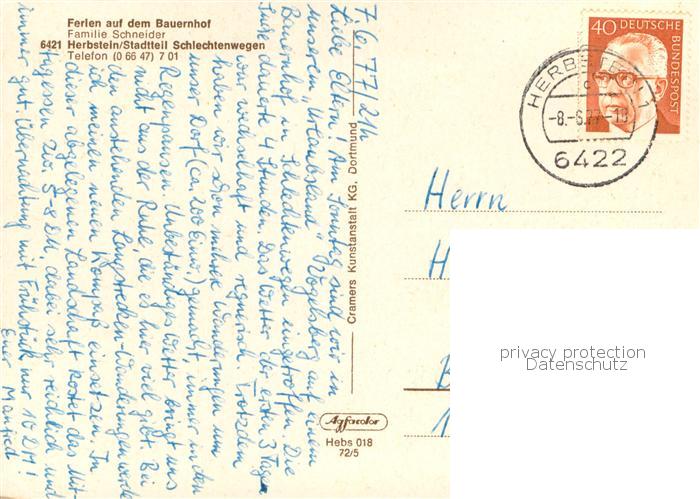 Ferien auf dem Bauernhof
Familie Schneider
6421 Herbstein/Stadtteil Schlechtenwegen
Telefon (0 66 47) 7 01
7.6.77/21h
Liebe Eltern! Am Sonntag sind wir in
unserem "Urlaubsland" Vogelsberg auf einem
Bauernhof in Schlechtenwegen eingetroffen. Die
Reise dauerte 4 Stunden. Das Wetter der erste 3 Tage
war wechselhaft und regnerisch. Trotzdem
haben wir schon mehrere Wanderungen um
unser Dorf (ca. 200 Einw.) gemacht, immer in den
Regenpausen. Unbeständiges Wetter bringt uns
nicht aus der Ruhe, die es hier viel gibt. Bei
den anstehenden Langstrecken-Wanderungen werde
ich meinen neuen Kompaß einsetzen. In
dieser abgelegenen Landschaft kostet das Mit-
tagessen zw. 5-8 DM, dabei sehr reichlich und
immer gut. Übernachtung mit Frühstück nur 10 DM!
Euer Manfred
Cramers Kunstanstalt KG, Dortmund
Agfacolor
Hebs 018
72/5
40 DEUTSCHE
BUNDESPOST
HERBSTEIN 1
c
-8.-6.77-18
6422
Herrn
H
B
1
privacy protection
Datenschutz